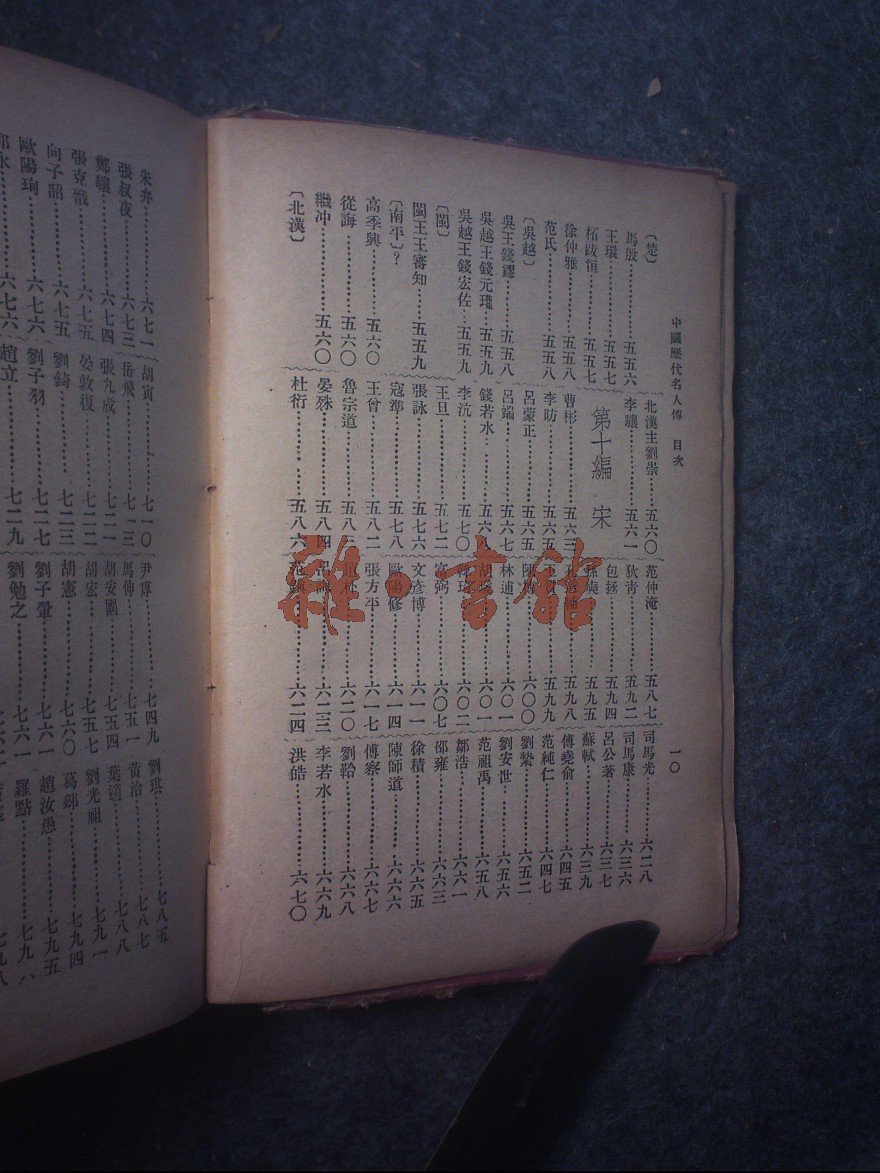 中國歷代名人傳　目次
一〇
〔楚〕
馬殷…………五五六
王環…………五五七
柘跋恒………五五七
徐仲雅………五五八
范氏…………五五八
〔吳越〕
吳王錢鏐……五五八
吳越王錢元瓘…五五九
吳越王錢宏佐…五五九
〔閩〕
閩王王審知……五五九
〔南平〕?
高季興…………五六〇
從誨…………五六〇
繼冲…………五六〇
〔北漢〕
北漢主劉崇……五六〇
李驤…………五六一
第十編　宋
曹彬…………五六三
李昉…………五六五
呂蒙正………五六五
呂端…………五六七
錢若水………五六九
李沆…………五七〇
王旦…………五七二
張詠…………五七六
寇準…………五七八
王曾…………五八二
魯宗道………五八三
晏殊…………五八四
杜衍…………五八六
范仲淹………五八七
狄青…………五九二
包拯…………五九四
孫奭…………五九五
五九八
五九九
六〇〇
林逋…………六〇一
胡瑗…………六〇一
六〇二
富弼…………六〇七
文彥博………六一一
歐陽修………六一四
張方平………六一七
趙抃…………六二〇
呂誨…………六二三
范鎮…………六二四
司馬光………六二八
司馬康………六三六
呂公著………六三七
蘇軾…………六三九
傅堯俞………六四五
范純仁………六四七
劉摯…………六五二
劉安世………六五六
范祖禹………六五八
鄒浩…………六六一
邵雍…………六六三
徐積…………六六五
陳師道………六六六
傅察…………六六七
劉鞈…………六六八
李若水………六六九
洪皓…………六七〇
朱弁…………六七一
張叔夜………六七三
鄭驤…………六七四
張克戩………六七五
向子韶………六七五
歐陽珣………六七六
六七六
胡寅…………七一〇
岳飛…………七一三
張九成………七二一
晏敦復………七二二
劉錡…………七二三
劉子羽………七二七
趙立…………七二九
尹焞…………七四九
馬伸…………七五一
胡安國………七五四
胡宏…………七五七
胡憲…………七六〇
劉子翬………七六一
劉勉之………七六一
劉珙…………七八五
黃治…………七八七
葉適…………七八八
劉光祖………七九一
葛邲…………七九四
趙汝愚………七九五
羅點…………七九八
雜·書館